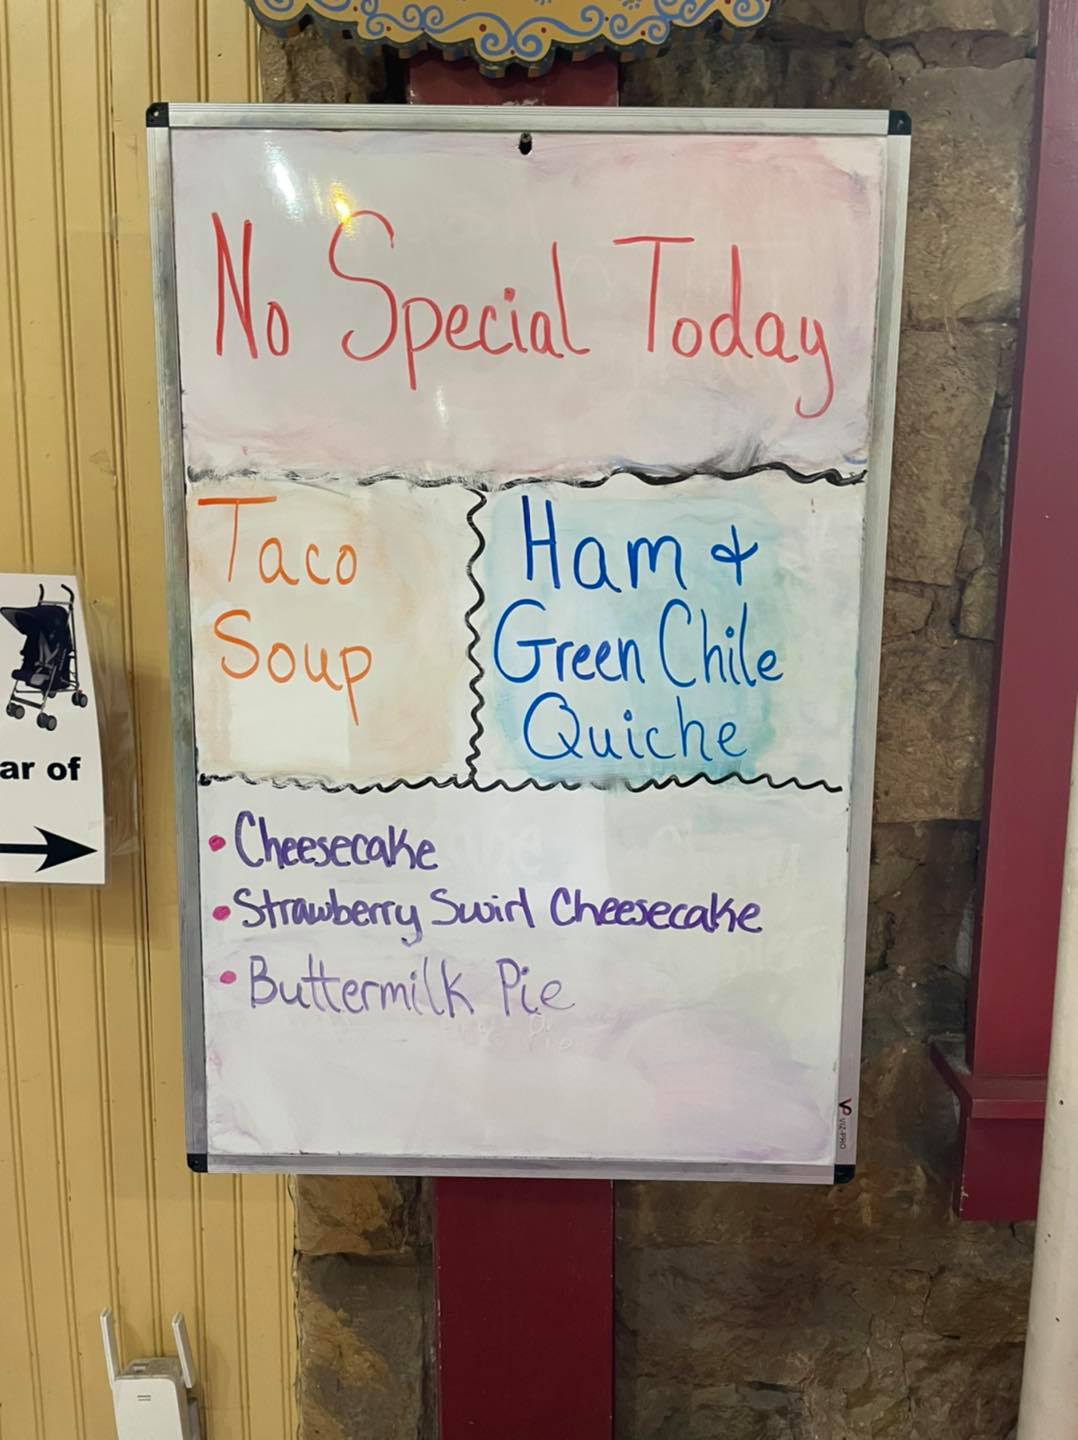 No Special Today
Taco
Soup
Ham &
Green Chile
Quiche
• Cheesecake
• Strawberry Swirl Cheesecake
• Buttermilk Pie
ar of
VIZ-PRO